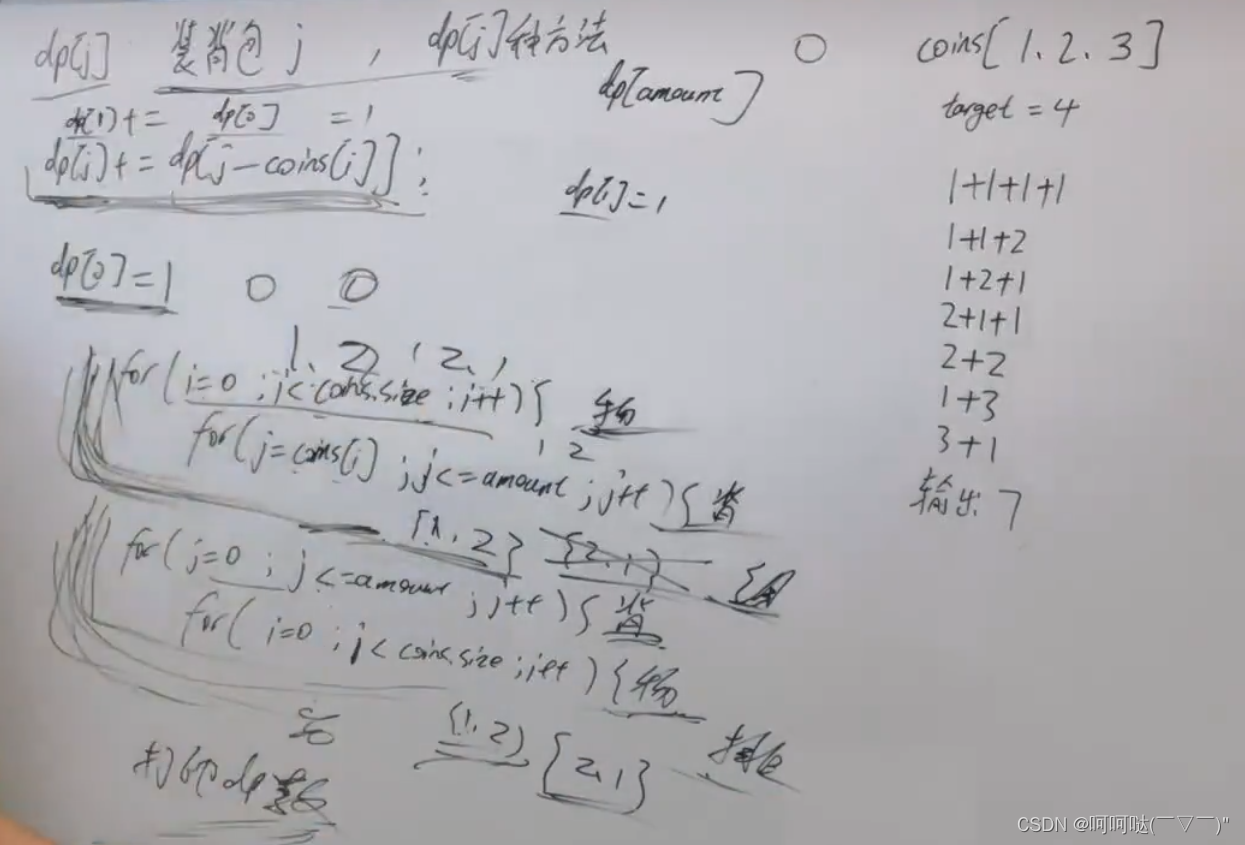 dp[j] 装背包 j , dp[j]种方法
dp[amount]
dp[1] += dp[0] = 1
dp[j] += dp[j-coins[i]];
dp[0]=1
1. 2
for (i=0 ; i<coins.size ; i++) { 物
1 2
for (j=coins[i] ; j<=amount ; j++) { 背
{1, 2} {2, 1}
for (j=0 ; j<=amount ; j++) { 背
for (i=0 ; i<coins.size ; i++) { 物
{1, 2} {2, 1} 排
打印dp数
coins[1. 2. 3]
target = 4
1+1+1+1
1+1+2
1+2+1
2+1+1
2+2
1+3
3+1
输出 7
CSDN @呵呵哒(￣▽￣)"